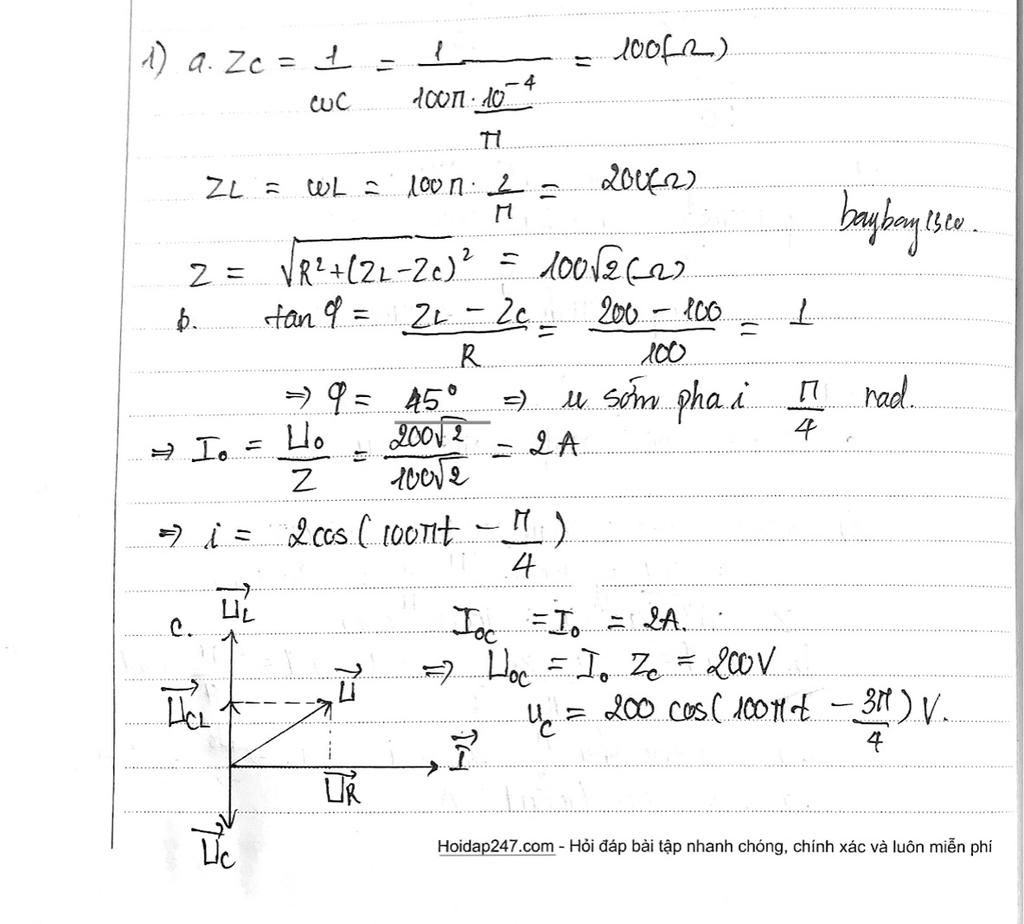 1) a. ZC = 1/ωC = 1/(100π · 10^-4/π) = 100(Ω)
ZL = ωL = 100π · 2/π = 200(Ω)
Z = √(R²+(ZL-ZC)²) = 100√2(Ω)
b. tan φ = (ZL - ZC)/R = (200 - 100)/100 = 1
⇒ φ = 45° ⇒ u sớm pha i π/4 rad.
⇒ I₀ = U₀/Z = 200√2/100√2 = 2A
⇒ i = 2cos(100πt - π/4)
c. I₀C = I₀ = 2A.
⇒ U₀C = I₀ ZC = 200V
uC = 200 cos(100πt - 3π/4) V.
UL
UCL
U
I
UR
UC
Hoidap247.com - Hỏi đáp bài tập nhanh chóng, chính xác và luôn miễn phí